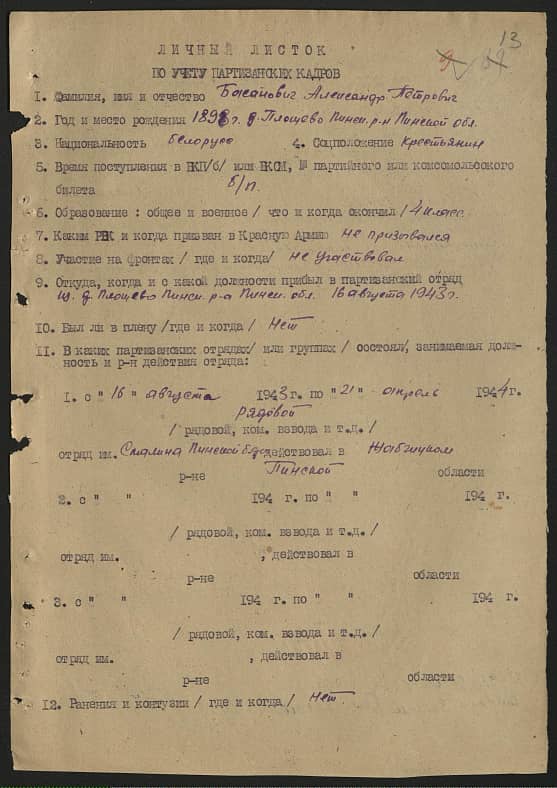 13
ЛИЧНЫЙ ЛИСТОК
ПО УЧЕТУ ПАРТИЗАНСКИХ КАДРОВ
1. Фамилия, имя и отчество Басанович Александр Петрович
2. Год и место рождения 1898г. д. Площево Пинск. р-н Пинской обл.
3. Национальность белорусс 4. Соцположение Крестьянин
5. Время поступления в ВКП/б/ или ВКСМ, № партийного или комсомольского
билета б/п.
6. Образование: общее и военное / что и когда окончил / 4 класс.
7. Каким РВК и когда призван в Красную Армию не призывался
8. Участие на фронтах / где и когда/ не участвовал
9. Откуда, когда и с какой должности прибыл в партизанский отряд
из д. Площево Пинск. р-а Пинск. обл. 16 августа 1943 г.
10. Был ли в плену /где и когда / Нет
11. В каких партизанских отрядах/ или группах / состоял/, занимаемая долж-
ность и р-н действия отряда:
1. с " 16 " августа 1943 г. по " 21 " апрель 1944 г.
рядовой
/ рядовой, ком. взвода и т.д. /
отряд им. Сталина Пинской действовал в Жабчицком
р-не Пинской области
2. с " " 194 г. по " " 194 г.
/ рядовой, ком. взвода и т.д. /
отряд им. , действовал в
р-не области
3. с " " 194 г. по " " 194 г.
/ рядовой, ком. взвода и т.д. /
отряд им. , действовал в
р-не области
12. Ранения и контузии / где и когда / Нет.